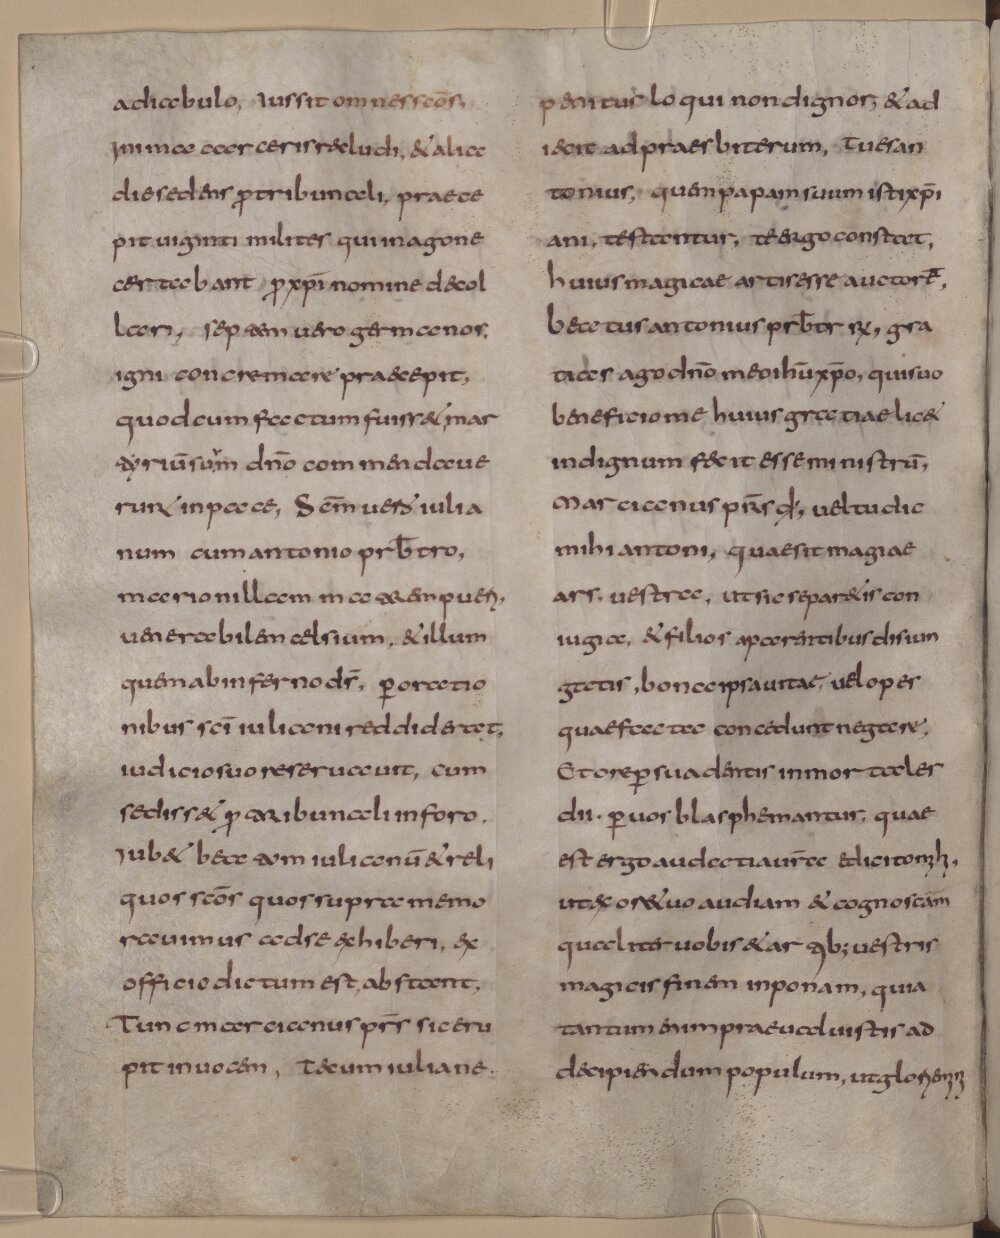 adiabulo, iussit omnes scōs,
in ima carceris recludi, & alia
die sedens ꝓ tribunali, praece
pit uiginti milites qui in agone
certabant ꝓ xp̄i nomine decol
lari, septem uero germanos,
igni concremare praecepit,
quod cum factum fuiss&, mar
tyriū suum dn̄o commendaue
runt in pace, Scm̄ uero iulia
num cum antonio prb̄tro,
marionillam matrem pueri,
uenerabilem celsium, & illum
quem ab inferno ds̄, ꝑ oratio
nibus sc̄i iuliani reddiderat,
iudicio suo reseruauit, cum
sediss& ꝓ tribunali in foro.
Iub& beatum iulianū & reli
quos scōs quos supra memo
rauimus ad se exhiberi, ex
officio dictum est, abstant,
Tunc marcianus prs̄ sic eru
pit in uocem, Tecum iuliane.
penitus loqui non dignor; & ad
iecit ad praesbiterum, Tu es an
tonius, quem papam suum isti xp̄i
ani, testantur, te ergo constat,
huius magicae artis esse auctorē,
beatus antonius prb̄tr rx, gra
tias ago dn̄o meo ihū xp̄o, qui suo
beneficio me huius gratiae lic&
indignum fecit esse ministrū,
Marcianus prs̄ d, uel tu dic
mihi antoni, quae sit magiae
ars uestra, ut sic separ&is con
iugia, & filios a parentibus disiun
gatis, bona ipsa uitae, uel opes
quae facta concedunt negare,
Et ore ꝑsuadentis inmortales
dii ꝑ uos blasphemantur, quae
est ergo audatia ur̄a edicito mihi,
ut ex ore tuo audiam & cognoscam
qualiter uobis & artib; uestris
magicis finem inponam, quia
tantum enim praeualuistis ad
decipiendum populum, ut glorientur